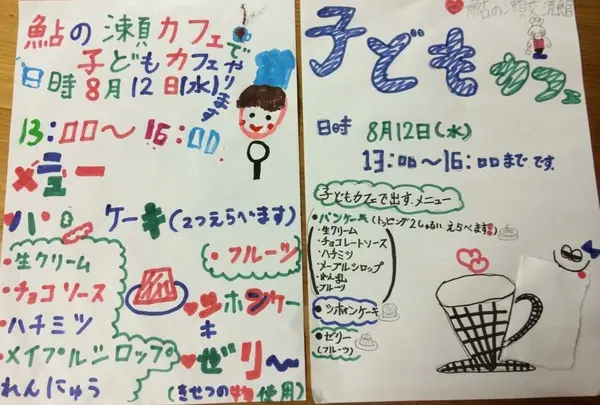 鮎の瀬カフェで
子どもカフェ
やります
日時8月12日(水)
13:00〜16:00
メニュー
パンケーキ(2つえらべます)
・生クリーム
・チョコソース
・ハチミツ
・メイプルシロップ
れんにゅう
・フルーツ
シホンケーキ
ゼリー
(きせつの物使用)
鮎の瀬交流館
子どもカフェ
日時 8月12日(水)
13:00〜16:00までです。
子どもカフェで出す.メニュー
・パンケーキ(トッピング2しゅるいえらべます)
・生クリーム
・チョコレートソース
・ハチミツ
・メープルシロップ
・れん乳
・フルーツ
・シホォンケーキ
・ゼリー
(フルーツ)